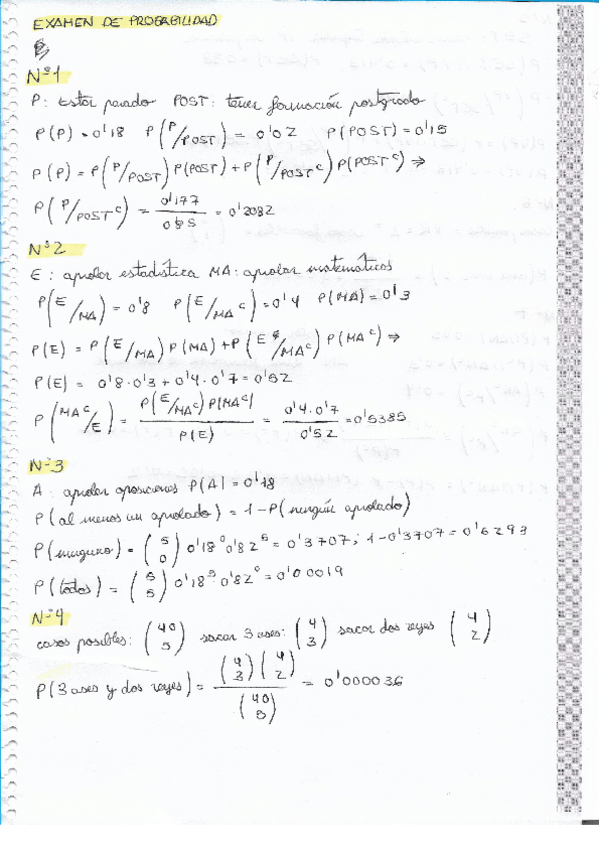 EXAMEN DE PROBABILIDAD
Nº1
P: Estar parado POST: tener formación postgrado
P(P) = 0'18 P(P/POST) = 0'02 P(POST) = 0'15
P(P) = P(P/POST) P(POST) + P(P/POST^c) P(POST^c) ⇒
P(P/POST^c) = 0'177/0'85 = 0'2082
Nº2
E: aprobar estadística MA: aprobar matemáticas
P(E/MA) = 0'8 P(E/MA^c) = 0'4 P(MA) = 0'3
P(E) = P(E/MA) P(MA) + P(E/MA^c) P(MA^c) ⇒
P(E) = 0'8 · 0'3 + 0'4 · 0'7 = 0'52
P(MA^c/E) = P(E/MA^c) P(MA^c)/P(E) = 0'4 · 0'7/0'52 = 0'5385
Nº3
A: aprobar oposiciones P(A) = 0'18
P(al menos un aprobado) = 1 - P(ningún aprobado)
P(ninguno) = (5 0) 0'18^0 0'82^5 = 0'3707; 1 - 0'3707 = 0'6293
P(todos) = (5 5) 0'18^5 · 0'82^0 = 0'00019
Nº4
casos posibles: (40 5) sacar 3 ases: (4 3) sacar dos reyes (4 2)
P(3 ases y dos reyes) = (4 3)(4 2)/(40 5) = 0'000036